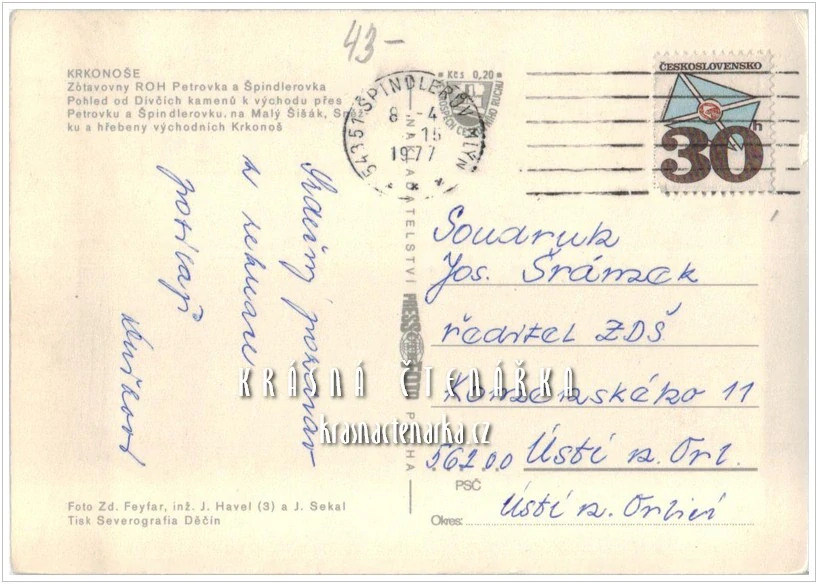 43-
KRKONOŠE
Zótavovny ROH Petrovka a Špindlerovka
Pohled od Dívčích kamenů k východu přes
Petrovku a Špindlerovku, na Malý Šišák,
ku a hřebeny východních Krkonoš
54351 ŠPINDLERŮV MLÝN
8 -4
15
1977
Kčs 0,20
ČESKOSLOVENSKO
30h
Srdečný pozdrav
z rekreace
posílají
NAKLADATELSTVÍ
PRAHA
Soudruh
Jos. Šrámek
ředitel ZDŠ
Komenského 11
56200 Ústí n. Orl.
PSČ
Ústí n. Orlicí
Okres:
KRÁSNÁ ČTENÁŘKA
krasnactenarka.cz
Foto Zd. Feyfar, inž. J. Havel (3) a J. Sekal
Tisk Severografia Děčín